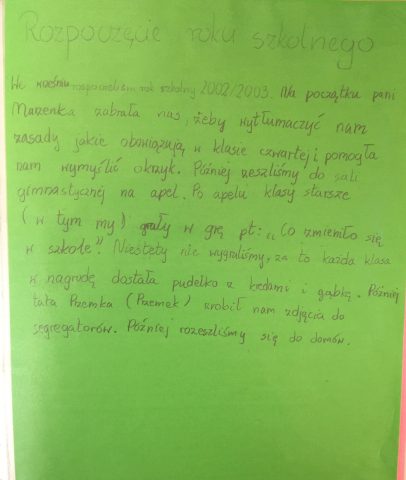 Rozpoczęcie roku szkolnego
We wrześniu rozpoczeliśmy rok szkolny 2002/2003. Na początku pani
Marzenka zabrała nas, żeby wytłumaczyć nam
zasady jakie obowiązują w klasie czwartej i pomogła
nam wymyślić okrzyk. Później zeszliśmy do sali
gimnastycznej na apel. Po apelu klasy starsze
(w tym my) grały w grę pt: „Co zmieniło się
w szkole". Niestety nie wygraliśmy, za to każda klasa
w nagrodę dostała pudełko z kredami i gąbkę. Później
tata Przemka (Przemek) zrobił nam zdjęcia do
segregatorów. Później rozeszliśmy się do domów.